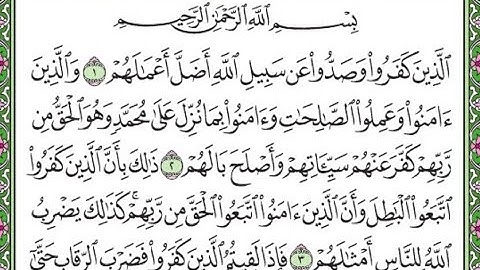 بِسْمِ ٱللَّهِ ٱلرَّحْمَٰنِ ٱلرَّحِيمِ
ٱلَّذِينَ كَفَرُوا۟ وَصَدُّوا۟ عَن سَبِيلِ ٱللَّهِ أَضَلَّ أَعْمَٰلَهُمْ ١ وَٱلَّذِينَ
ءَامَنُوا۟ وَعَمِلُوا۟ ٱلصَّٰلِحَٰتِ وَءَامَنُوا۟ بِمَا نُزِّلَ عَلَىٰ مُحَمَّدٍ وَهُوَ ٱلْحَقُّ مِن
رَّبِّهِمْ كَفَّرَ عَنْهُمْ سَيِّـَٔاتِهِمْ وَأَصْلَحَ بَالَهُمْ ٢ ذَٰلِكَ بِأَنَّ ٱلَّذِينَ كَفَرُوا۟
ٱتَّبَعُوا۟ ٱلْبَٰطِلَ وَأَنَّ ٱلَّذِينَ ءَامَنُوا۟ ٱتَّبَعُوا۟ ٱلْحَقَّ مِن رَّبِّهِمْ ۚ كَذَٰلِكَ يَضْرِبُ
ٱللَّهُ لِلنَّاسِ أَمْثَٰلَهُمْ ٣ فَإِذَا لَقِيتُمُ ٱلَّذِينَ كَفَرُوا۟ فَضَرْبَ ٱلرِّقَابِ حَتَّىٰٓ